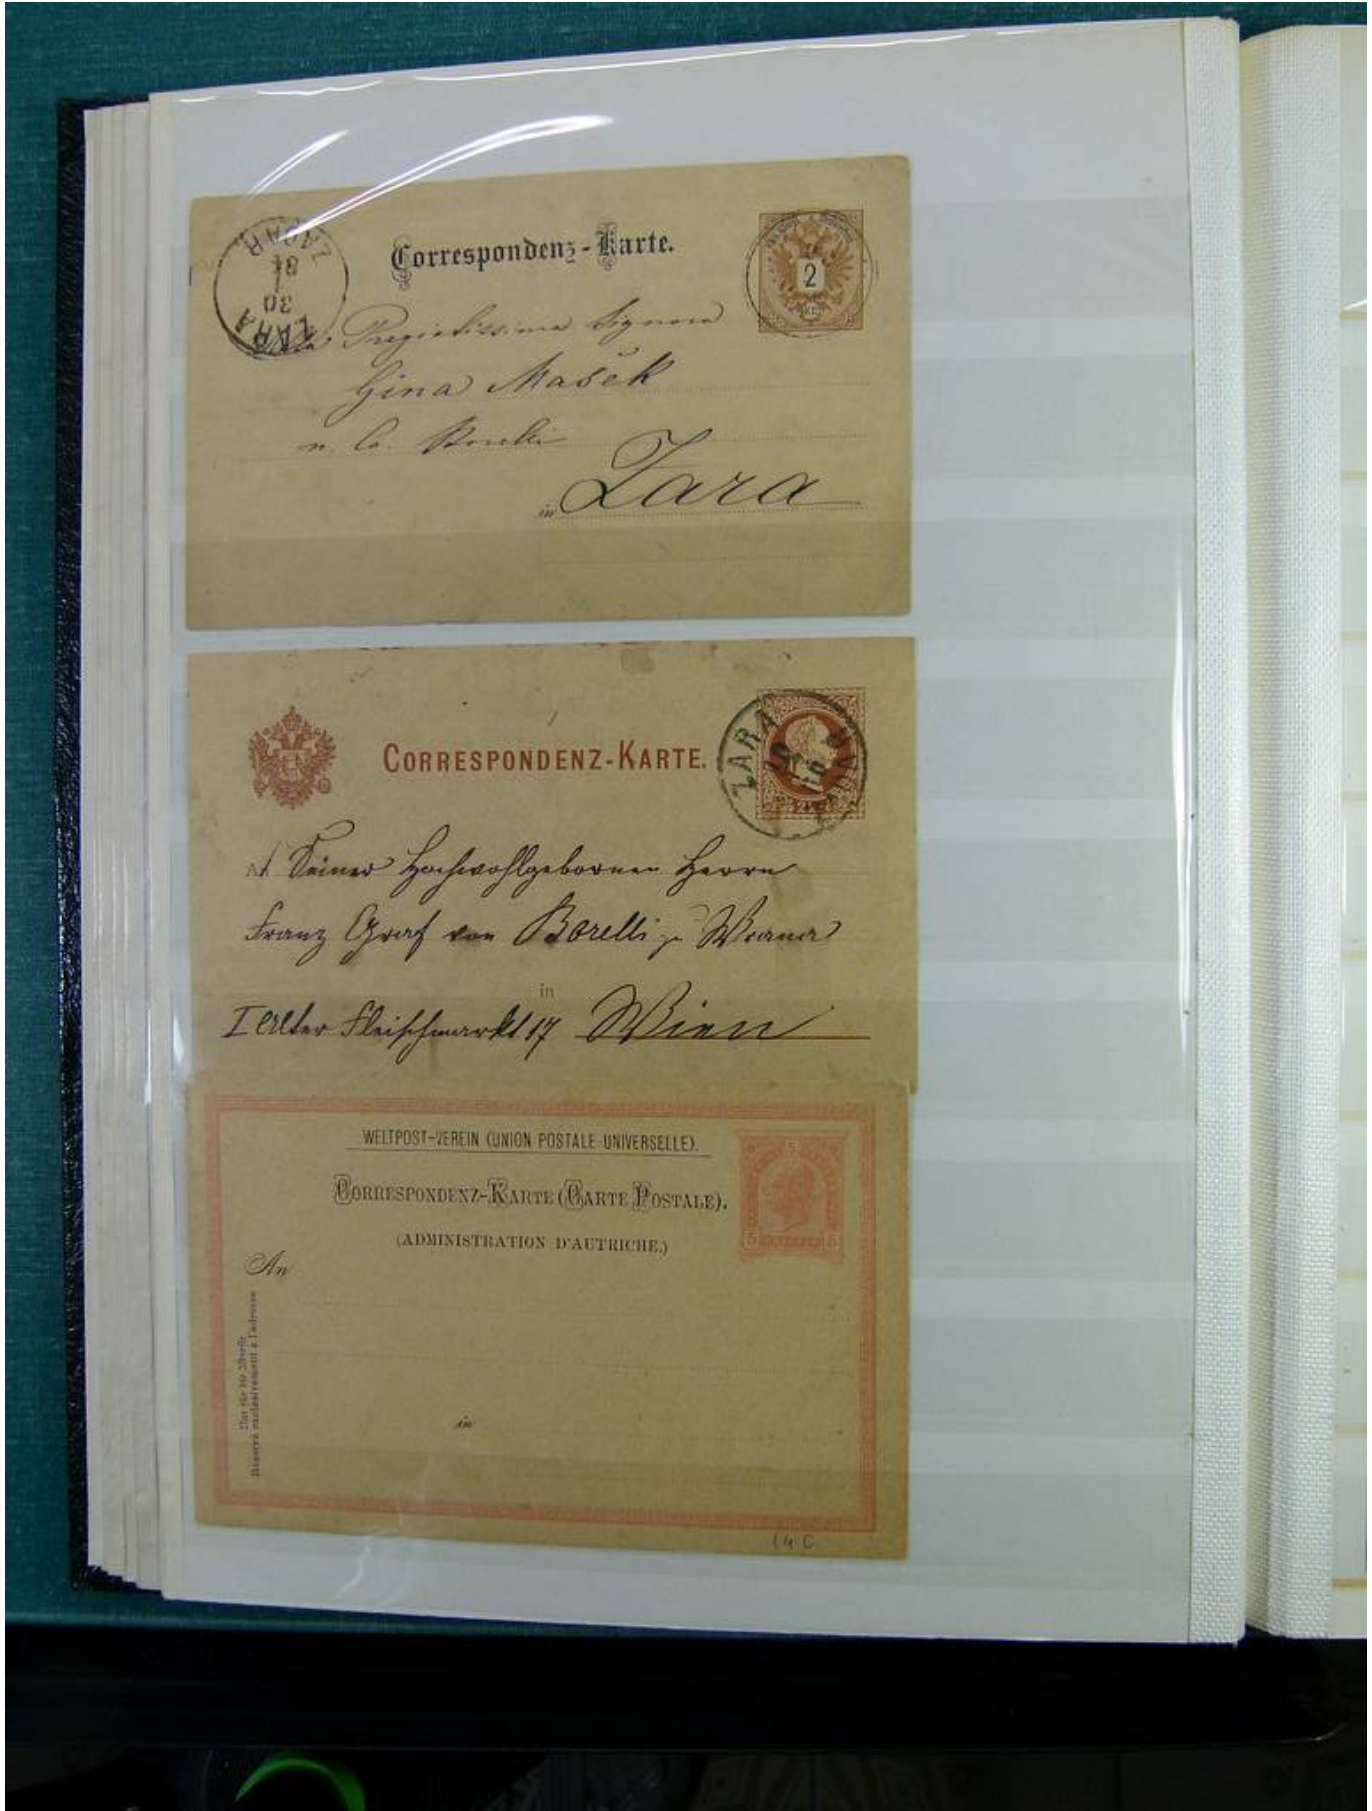 Correspondenz-Karte.
2
ZARA
30
ZADAR
Pregiatissima Signora
Gina Mašek
in Zara
CORRESPONDENZ-KARTE.
ZARA
10
An Seiner Hochwohlgeboren Herrn
Franz Graf von Borelli zu Wrana
in
I Alter Fleischmarkt 17 Wien
WELTPOST-VEREIN (UNION POSTALE UNIVERSELLE).
5
CORRESPONDENZ-KARTE (CARTE POSTALE).
(ADMINISTRATION D'AUTRICHE.)
5 5
An
Nur für die Adresse
Réservé exclusivement à l'adresse
in